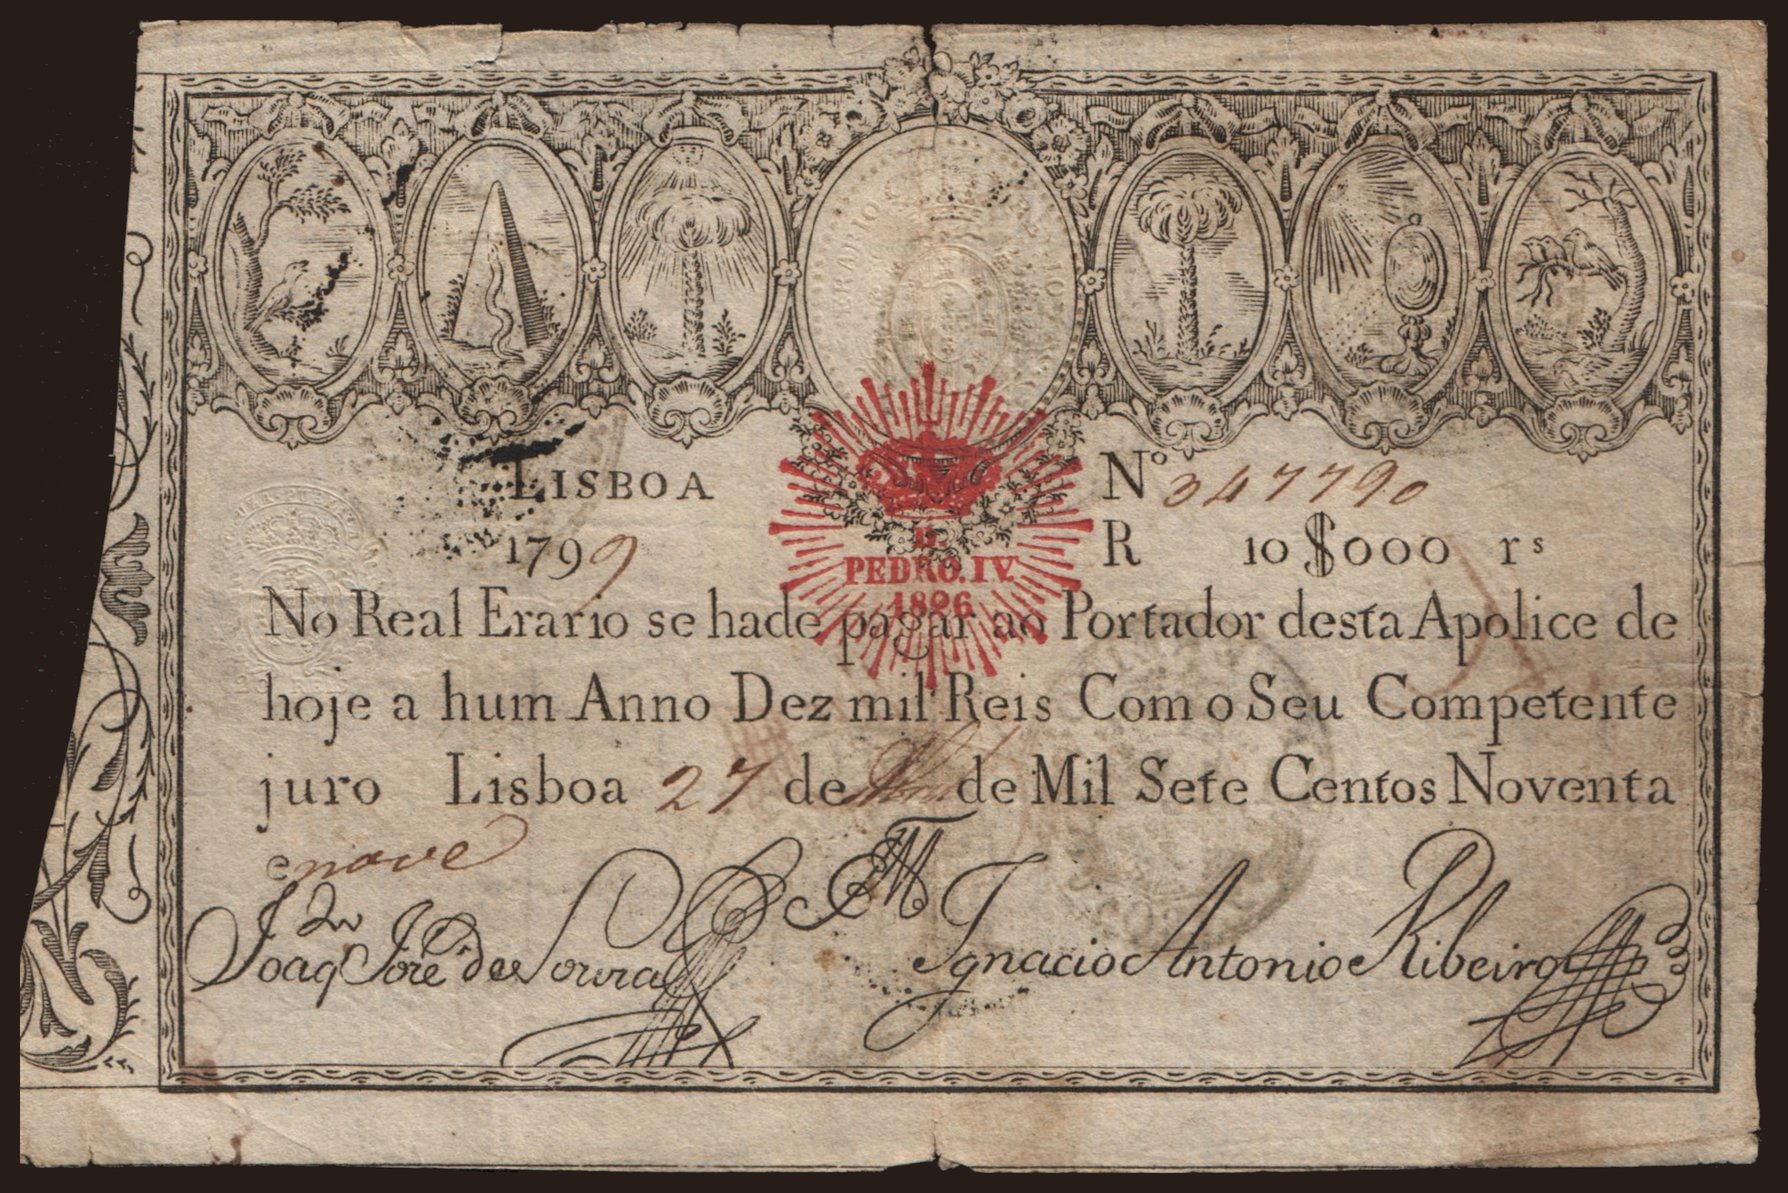 LISBOA
Nº 347790
1799
R 10$000 rs
D.
PEDRO. IV.
1826
No Real Erario se hade pagar ao Portador desta Apolice de
hoje a hum Anno Dez mil Reis Com o Seu Competente
juro Lisboa 27 de Abril de Mil Sete Centos Noventa
e nove
Joaqm José de Souza
Ignacio Antonio Ribeiro